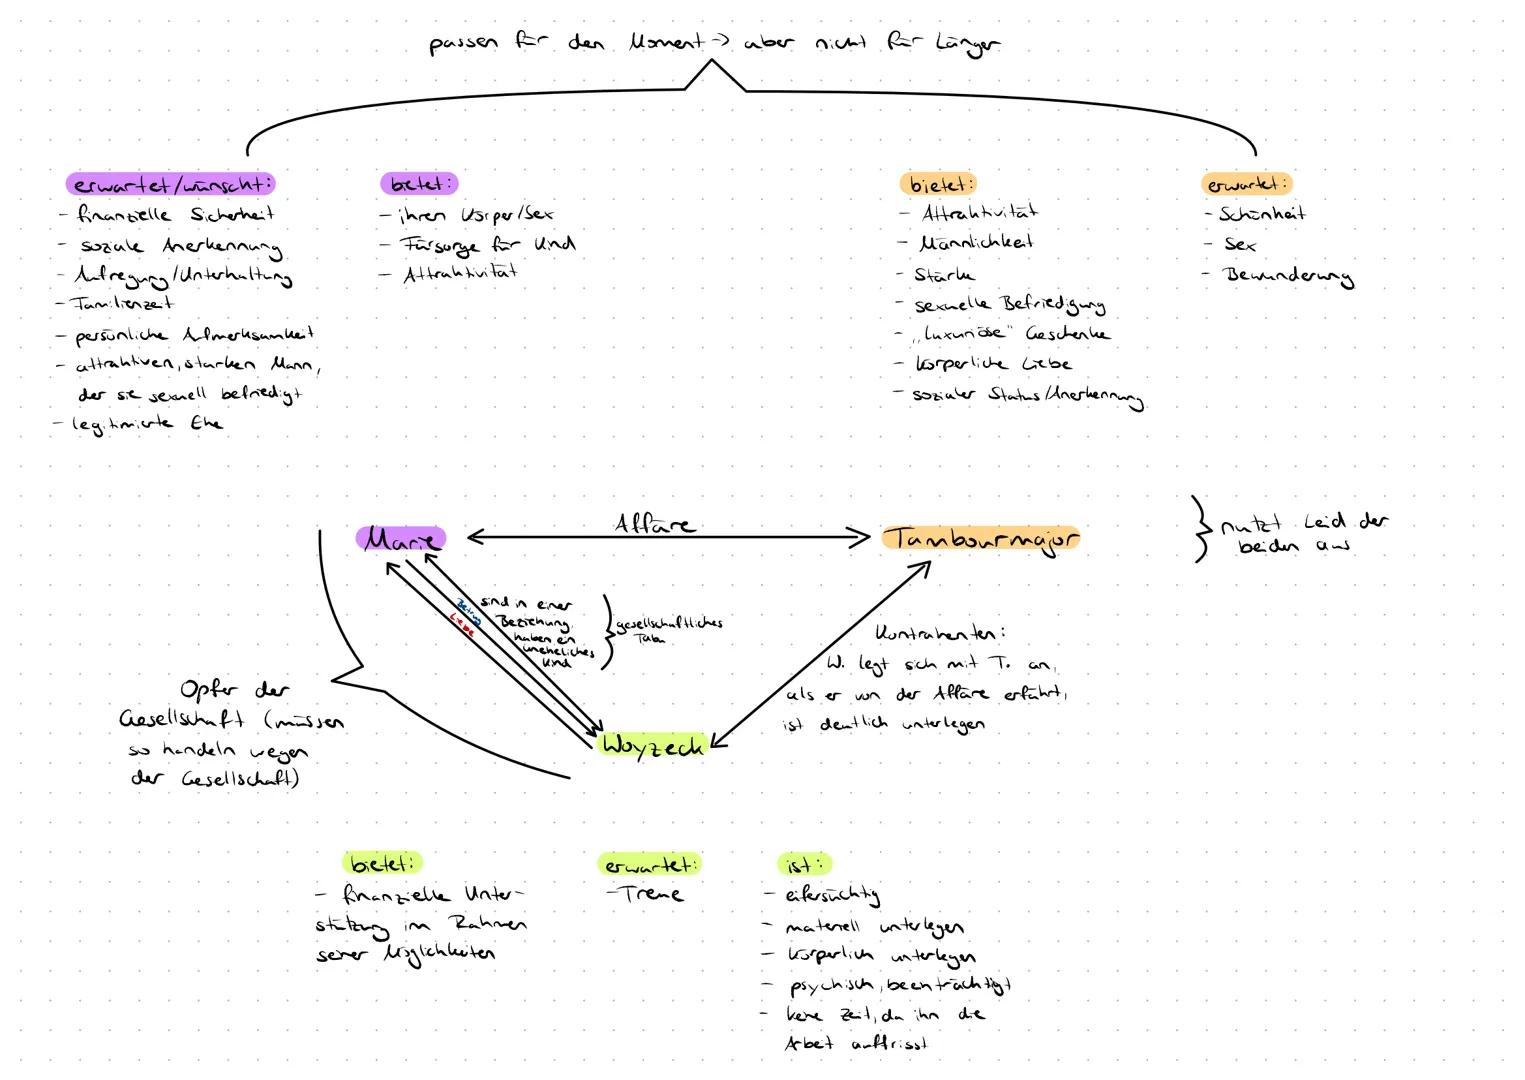 passen für den Moment → aber nicht für Länger
erwartet/wünscht:
- finanzielle Sicherheit
- soziale Anerkennung
- Aufregung/Unterhaltung
- Familienzeit
- persönliche Aufmerksamkeit
- attraktiven, starken Mann,
der sie sexuell befriedigt
- legitimierte Ehe
bietet:
- ihren Körper/Sex
- Fürsorge für Kind
- Attraktivität
bietet:
- Attraktivität
- Männlichkeit
- Stärke
- sexuelle Befriedigung
- „luxuriöse" Geschenke
- körperliche Liebe
- sozialer Status/Anerkennung
erwartet:
- Schönheit
- Sex
- Bewunderung
Marie
Affäre
Tambourmajor
nutzt Leid der
beiden aus
Betrug
Liebe
sind in einer
Beziehung,
haben ein
uneheliches
Kind
gesellschaftliches
Tabu
Kontrahenten:
W. legt sich mit T. an,
als er von der Affäre erfährt,
ist deutlich unterlegen
Opfer der
Gesellschaft (müssen
so handeln wegen
der Gesellschaft)
Woyzeck
bietet:
- finanzielle Unter-
stützung im Rahmen
seiner Möglichkeiten
erwartet:
- Treue
ist:
- eifersüchtig
- materiell unterlegen
- körperlich unterlegen
- psychisch beeinträchtigt
- keine Zeit, da ihn die
Arbeit auffrisst